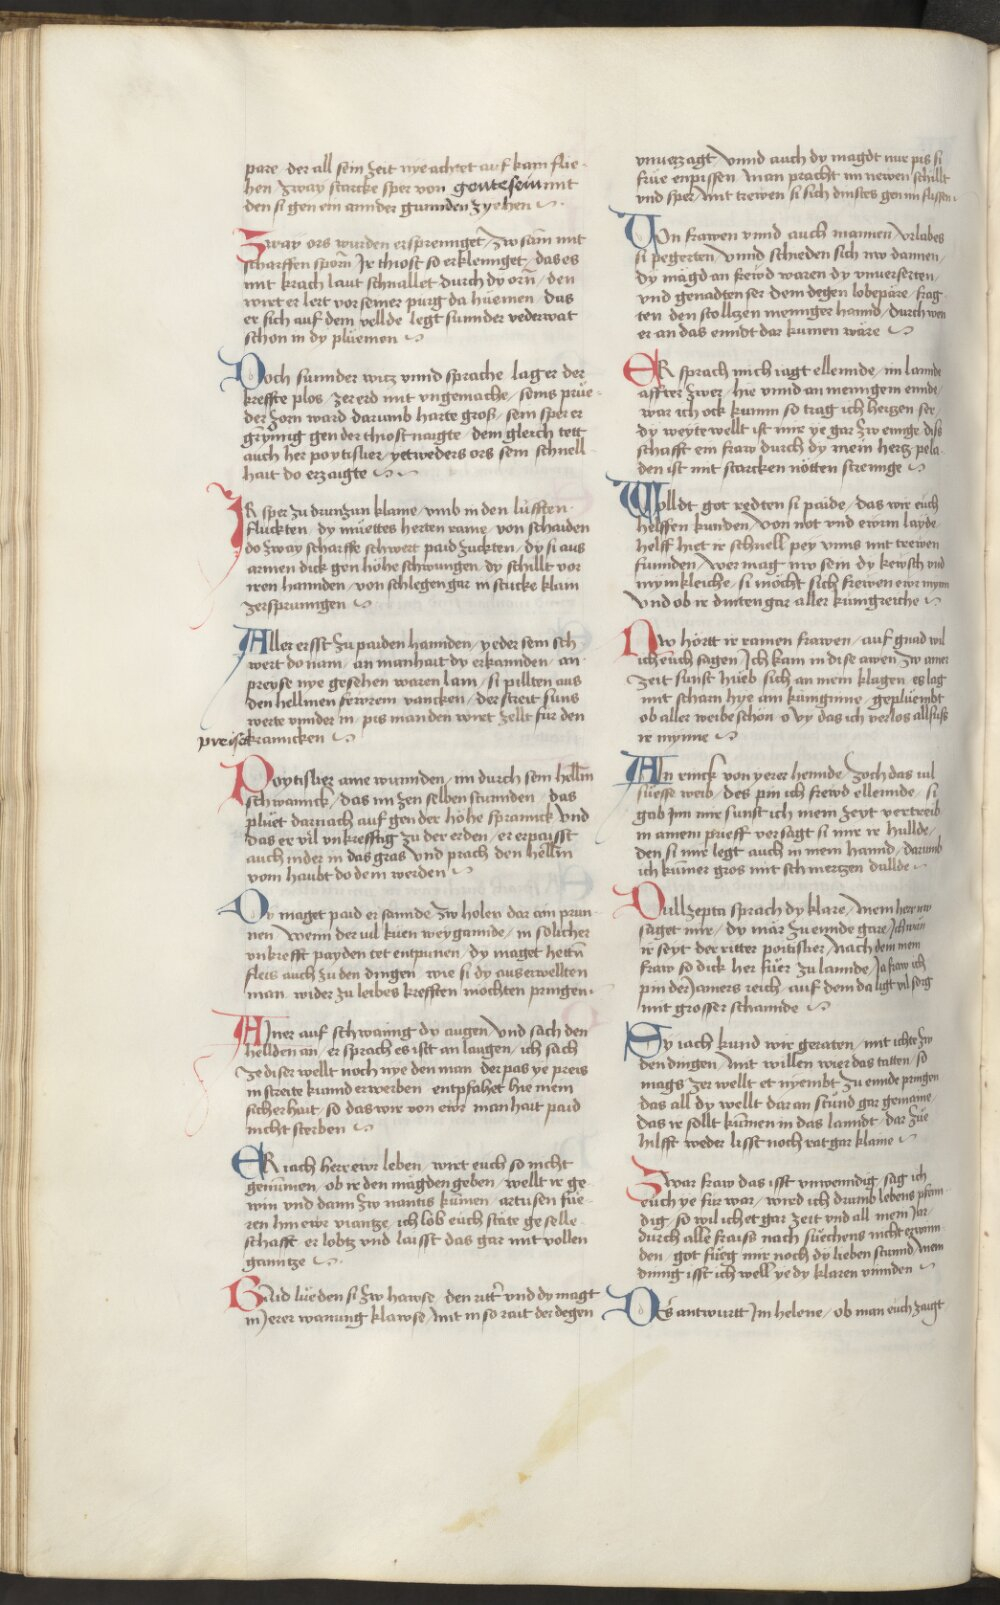 pare · der all sein zeit nye achtet auf kain flie-
hen zway starcke sper von gentesein mit
den si gen ein annder gunnden zyehen
Zway ors wurden ersprennget / zw sam mit
scharffen sporn Ir thiost so erklennget / das es
mit krach laut schnallet durch dy orn / den
wirt er lert vor seiner purg da hüemen / das
er sich auf dem vellde legt sunnder vederwat
schon in dy plüemen
Doch sunnder witz vnnd sprache lag er der
kreffte plos / zererd mit vngemache / seins prüe-
der zorn ward darumb harte groß / sein sper er
grymig gen der thiost naigte / dem gleich tett
auch her poytislier / yetweders ors sein schnell
hait do erzaigte
IR sper zu drunzun klaine / vmb in den lüfften
fluckten / dy müettes herten raine / von schaiden
do zway scharffe schwert paid zuckten / dy si aus
armen dick gen höhe schwungen / dy schillt vor
iren hannden / von schlegen gar in stucke klain
zersprunngen
Aller ersst zu paiden hannden / yeder sein sch
wert do nam / an manhait dy erkannden / an
preyse nye gesehen waren lam / si pillten aus
den hellmen fewrein vancken / der streit suns
werte vnnder in / pis man den wiret zellt für den
preise krannckn
Poytislier aine wunnden / im durch sein hellm
schwannck / das im zen selben stunnden / das
pluet darnach auf gen der höhe sprannck vnd
das er vil vnkrefftig zu der erden / er erpaisst
auch nider in das gras vnd prach den hellm
vom haubt do dem werden
Dy maget paid er sannde zw holen dar ain prun-
nen / wenn der vil küen weygannde / in solicher
vnkrefft payden tet entpunen / dy maget hettn
fleis auch zu den dingen / wie si dy auserwellten
man wider zu leibes krefften möchten pringen ·
AIner auf schwanng dy augen vnd sach den
hellden an / er sprach es ist an laugen / ich sach
ze diser wellt noch nye den man der pas ye preis
in streite kunnd erwerben / entpfahet hie mein
sicherhait / so das wir von ewr manhait paid
nicht sterben
ER iach herr ewr leben / wirt euch so nicht
genumen / ob ir den mägden geben / wellt ir ge-
win vnd dann zw nantis kumen / artusen füe-
ren hin ewr viantze / ich lob euch stäte geselle-
schafft er lobtz vnd laisst das gar mit vollen
ganntze
Baid lüeden si zw hawse den rittr vnd dy magt
in Jerer wanung klawse / mit in so rait der degen
vnuerzagt / vnnd auch dy magdt nur pis si
früe enpissen / man pracht im newen schillt
vnd sper / mit trewen si sich dinstes gen im flissen ·
Von frawen vnnd auch mannen / vrlabes
si pegerten / vnnd schieden sich nw dannen
dy mägd an frewd waren dy vnuerserten
vnd genadten ser dem degen lobepäre / frag-
ten den stolltzen menniger hannd / durch wen
er an das enndt dar kumen wäre
ER sprach mich iagt ellennde / im lannde
affter zwer / hie vnnd an mennigem ennde
war ich ock kumm so trag ich hertzen ser /
dy weyte wellt ist mir ye gar zw einge / diss
schafft ein fraw durch dy mein hertz pela-
den ist mit starcken nötten strennge
Wolldt got redten si paide / das wir euch
helffen kunden / von not vnd ewrm layde
helff hiet ir schnell pey vnns mit trewen
funnden / wer mag nw sein dy kewsch vnd
mynnkleiche / si möcht sich frewen ewr mynn
vnd ob ir dinten gar aller kunigreiche
Nw hörtt ir rainen frawen / auf gnad wil
ich euch sagen / Ich kam in dise awen zw ainer
zeit sunst hueb sich an mein klagen / es lag
mit scharn hye ain küniginne / geplüembt
ob aller weibe schön / o vy das ich verlos all süsß
ir mynne
AIn rinck von yerer hennde / zoch das vil
süesse weib / des pin ich frewd ellennde / si
gab Inn mir sunst ich mein zeyt vertreib
in ainem prieff versagt si mir ir hullde /
den si mir legt auch in mein hannd / darumb
ich kumer gros mit schmertzen dullde
Dullzepta sprach dy klare / mein herr nw
saget mir / dy mär zu ennde gare / Ich wän
ir seyt der ritter poitislier / nach dem mein
fraw so dick her füer zu lannde / Ja fraw ich
pin der Jamers reich / auf dem da ligt vil sorg
mit grosser schannde
Sy iach kund wir geraten / mit ichte zw
den dingen / mit willen wier das tätten / so
mags zer wellt et nyembt zu ennde pringen
das all dy wellt dar an stünd gar gemaine /
das ir sollt kümen in das lanndt / dar züe
hilfft weder lisst noch rat gar klaine
Zwar fraw das isst vnwenndig / sag ich
euch ye für war / wird ich drumb lebens pfenn-
dig / so wil ich et gar zeit vnd all mein Jar /
durch alle fraiss nach süechens nicht erwinn-
den / got füeg mir noch dy lieben stunnd / mein
dinng isst ich well ye dy klaren vinnden
Des antwurtt Im helene / ob man euch zaigt